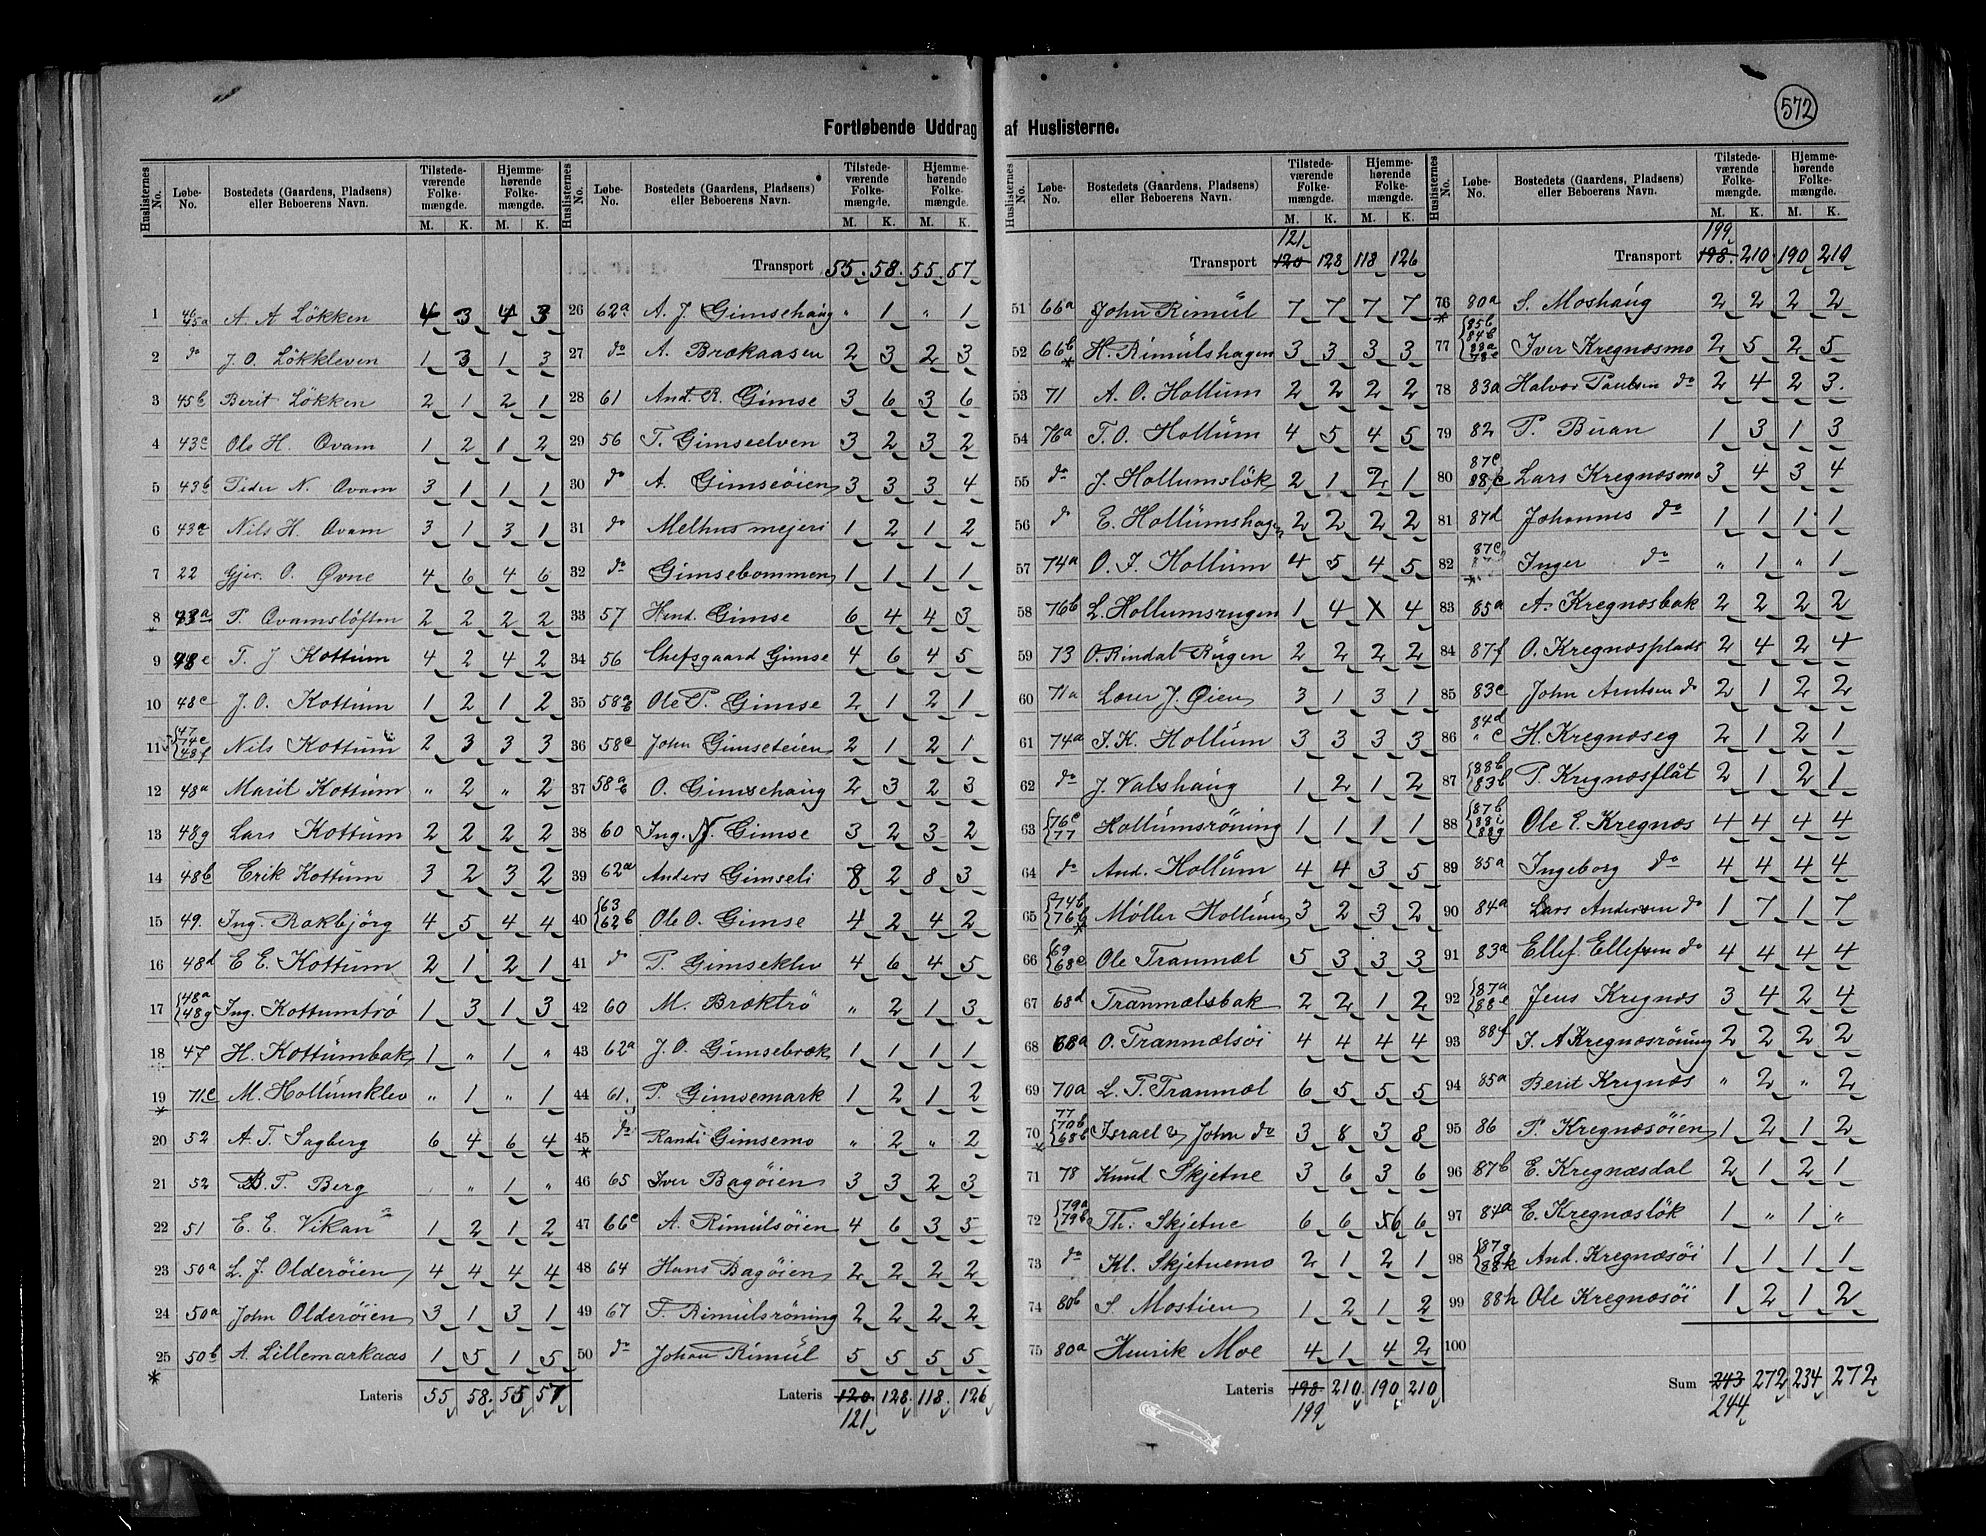 572
Fortløbende Uddrag af Huslisterne.
Huslisternes No. Løbe-No. Bostedets (Gaardens, Pladsens) eller Beboerens Navn. Tilstedeværende Folkemængde. M. K. Hjemmehørende Folkemængde. M. K.
1 46 45a A A Løkken 4 3 4 3
2 do J. O. Løkkleven 1 3 1 3
3 45b Berit Løkken 2 1 2 1
4 43c Ole H. Qvam 1 2 1 2
5 43b Peder N. Qvam 3 1 1 1
6 43a Nils H. Qvam 3 1 3 1
7 22 Gjer. O. Øvne 4 6 4 6
8 * 83a P. Qvamsløften 2 2 2 2
9 48e T. J Kottum 4 2 4 2
10 48c J. O. Kottum 1 2 1 2
11 47 74c 48f Nils Kottum 2 3 3 3
12 48a Marit Kottum " 2 " 2
13 48g Lars Kottum 2 2 2 2
14 48b Erik Kottum 3 2 3 2
15 49. Ing. Rakbjörg 4 5 4 4
16 48d E E. Kottum 2 1 2 1
17 48a 48g Ing. Kottumtrø 1 3 1 3
18 47 H. Kottumbak 1 " 1 "
19 * 71c M. Hollumklev " 1 " 1
20 52 A. T. Sagberg 6 4 6 4
21 52 B. T. Berg " 1 "
22 51 E. E. Vikan 1 2 1 2
23 50a L. J. Olderöien 4 4 4 4
24 50a John Olderöien 3 1 3 1
25 * 50b A. Lillemarkaas 1 5 1 5
Lateris 55 58. 55 57
Huslisternes No. Løbe-No. Bostedets (Gaardens, Pladsens) eller Beboerens Navn. Tilstedeværende Folkemængde. M. K. Hjemmehørende Folkemængde. M. K.
Transport 55. 58. 55. 57
26 62a A. J. Gimsehaug " 1 " 1
27 do A. Brækaasen 2 3 2 3
28 61 And. R. Gimse 3 6 3 6
29 56 T. Gimseelven 3 2 3 2
30 do A. Gimseöien 3 3 3 4
31 do Melhus mejeri 1 2 1 2
32 do Gimsebommen 1 1 1 1
33 57 Hend. Gimse 6 4 4 3
34 56 Chefsgaard Gimse 4 6 4 5
35 58a b Ole P. Gimse 2 1 2 1
36 58c John Gimseteien 2 1 2 1
37 58a b O. Gimsehaug 2 3 2 3
38 60 Ing. N. Gimse 3 2 3 2
39 62a Anders Gimseli 8 2 8 3
40 63 62b Ole O. Gimse 4 2 4 2
41 do P. Gimseklev 4 6 4 5
42 60 M. Bræktrö " 2 1 3
43 62a J. O. Gimsebræk 1 1 1 1
44 61. P. Gimsemark 1 2 1 2
45 * do Randi Gimsemo " 2 " 2
46 65 Iver Bagöien 3 3 2 3
47 66c A. Rimulsöien 4 6 3 5
48 64 Hans Bagöien 2 2 2 2
49 67 T. Rimulsröning 2 2 2 2
50 do Johan Rimul 5 5 5 5
Lateris 120 128. 118. 126
121
Huslisternes No. Løbe-No. Bostedets (Gaardens, Pladsens) eller Beboerens Navn. Tilstedeværende Folkemængde. M. K. Hjemmehørende Folkemængde. M. K.
121
Transport 120 128 118 126
51 66a John Rimul 7 7 7 7
52 66b * H. Rimulshagen 3 3 3 3
53 71 A. O. Hollum 2 2 2 2
54 76a T. O. Hollum 4 5 4 5
55 do J. Hollumslök 2 1 2 1
56 do E. Hollumshagen 2 2 2 2
57 74a O. J. Hollum 4 5 4 5
58 76b L. Hollumsrugen 1 4 X 4
59 73 O. Rindal Rugen 2 2 2 2
60 71a Lorer J. Øien 3 1 3 1
61 74a J. K. Hollum 3 3 3 3
62 do J. Valshaug 1 2 1 2
63 76c 77 Hollumsröning 1 1 1 1
64 do And. Hollum 4 4 3 5
65 74b 76b * Møller Hollum 3 2 3 2
66 69 68c Ole Tranmæl 5 3 3 3
67 68d Tranmælsbak 2 2 1 2
68 68a O. Tranmælsöi 4 4 4 4
69 70a L. T. Tranmæl 6 5 5 5
70 * 77 70b 68b Israel & John do 3 8 3 8
71 78 Knud Skjetne 3 6 3 6
72 79a 79b Th: Skjetne 6 6 56 6
73 do Kl. Skjetnemo 2 1 2 1
74 80b S. Mostien 1 2 1 2
75 80a Henrik Moe 4 1 4 2
Lateris 198 210 190 210
199
Huslisternes No. Løbe-No. Bostedets (Gaardens, Pladsens) eller Beboerens Navn. Tilstedeværende Folkemængde. M. K. Hjemmehørende Folkemængde. M. K.
199
Transport 198. 210 190 210
76 * 80a S. Moshaug 2 2 2 2
77 85b 84b 88a 78c Iver Kregnæsmo 2 5 2 5
78 83a Halvor Paulsen do 2 4 2 3.
79 82 P. Buan 1 3 1 3
80 87c 88c Lars Kregnæsmo 3 4 3 4
81 87d Johannes do 1 1 1 1
82 * 87c Inger do " 1 " 1
83 85a A. Kregnæsbak 2 2 2 2
84 87f O. Kregnæsplads 2 4 2 4
85 83c John Arntsen do 2 1 2 2
86 84d " c H. Kregnæseg 2 1 2 1
87 88b 83b P. Kregnæsflåt 2 1 2 1
88 87b 88i 88g Ole E. Kregnæs 4 4 4 4
89 85a Ingeborg do 4 4 4 4
90 84a Lars Andersen do 1 7 1 7
91 83a Ellef. Ellefsen do 4 4 4 4
92 87a 88e Jens Kregnæs 3 4 2 4
93 88f J. A Kregnæsröning 2 2 2 2
94 85a Berit Kregnæs " 2 " 2
95 86 P. Kregnæsöien 1 2 1 2
96 87b E. Kregnæsdal 2 1 2 1
97 84a E. Kregnæslök 1 " 1 "
98 87g 88k And. Kregnæsöi 1 1 1 1
99 88h Ole Kregnæsöi 1 2 1 2
100
Sum 243 272 234 272
244